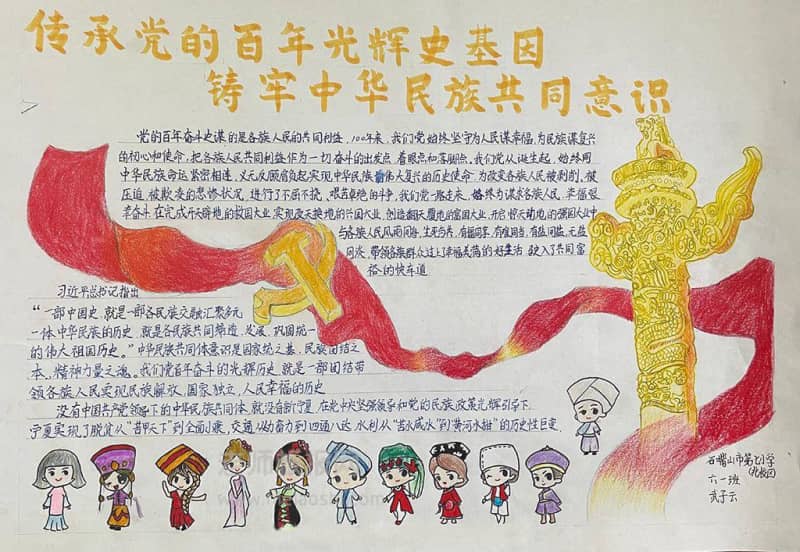 传承党的百年光辉史基因
铸牢中华民族共同意识
党的百年奋斗史谋的是各族人民的共同利益，100年来，我们党始终坚守为人民谋幸福，为民族谋复兴
的初心和使命，把各族人民共同利益作为一切奋斗的出发点、着眼点和落脚点。我们党从诞生起，始终同
中华民族命运紧密相连，义无反顾肩负起实现中华民族伟大复兴的历史使命，为改变各族人民被剥削、被
压迫、被欺凌的悲惨状况，进行了不屈不挠、艰苦卓绝的斗争，我们党一路走来，始终为谋求各族人民
幸福艰
李奋斗，在完成开天辟地的救国大业，实现改天换地的兴国大业，创造翻天覆地的富国大业，开启惊天动地的强国大业中
与各族人民风雨同舟、生死与共，有福同享，有难同当，有盐同咸，无盐
同淡，带领各族群众过上幸福美满的好生活，驶入了共同富
裕的快车道
习近平总书记指出
“一部中国史，就是一部各民族交融汇聚多元
一体中华民族的历史，就是各民族共同缔造、发展、巩固统一
的伟大祖国历史。”中华民族共同体意识是国家统一之基、民族团结之
本、精神力量之魂。我们党百年奋斗的光辉历史，就是一部团结带
领各族人民实现民族解放、国家独立、人民幸福的历史
没有中国共产党领导下的中华民族共同体，就没有新宁夏，在党中央坚强领导和党的民族政策光辉引导下
宁夏实现了脱贫从“苦甲天下”到全面小康，交通从畜力到四通八达，水利从“苦水咸水”到“黄河水甜”的历史性巨变
石嘴山市第七小学
六一班